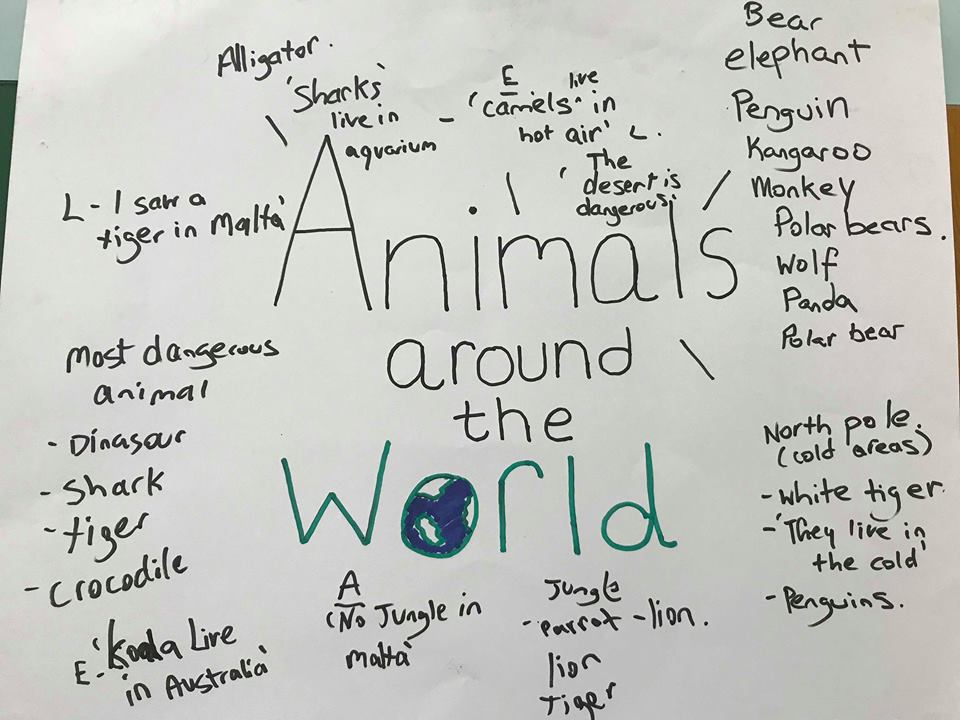 Alligator.
'Sharks'
live in
aquarium
E live
- 'Camels' in
hot air' L.
'The
desert is
dangerous'
Bear
elephant
Penguin
Kangaroo
Monkey
Polar bears.
Wolf
Panda
Polar bear
L - I saw a
tiger in Malta'
Animals
around
the
World
most dangerous
animal
- Dinasour
- Shark
- tiger
- crocodile
E - 'Koala Live
in Australia'
A
'No Jungle in
malta'
Jungle
- parrot - lion.
lion
tiger
North pole.
(cold areas)
- white tiger.
- 'They live in
the cold'
- Penguins.